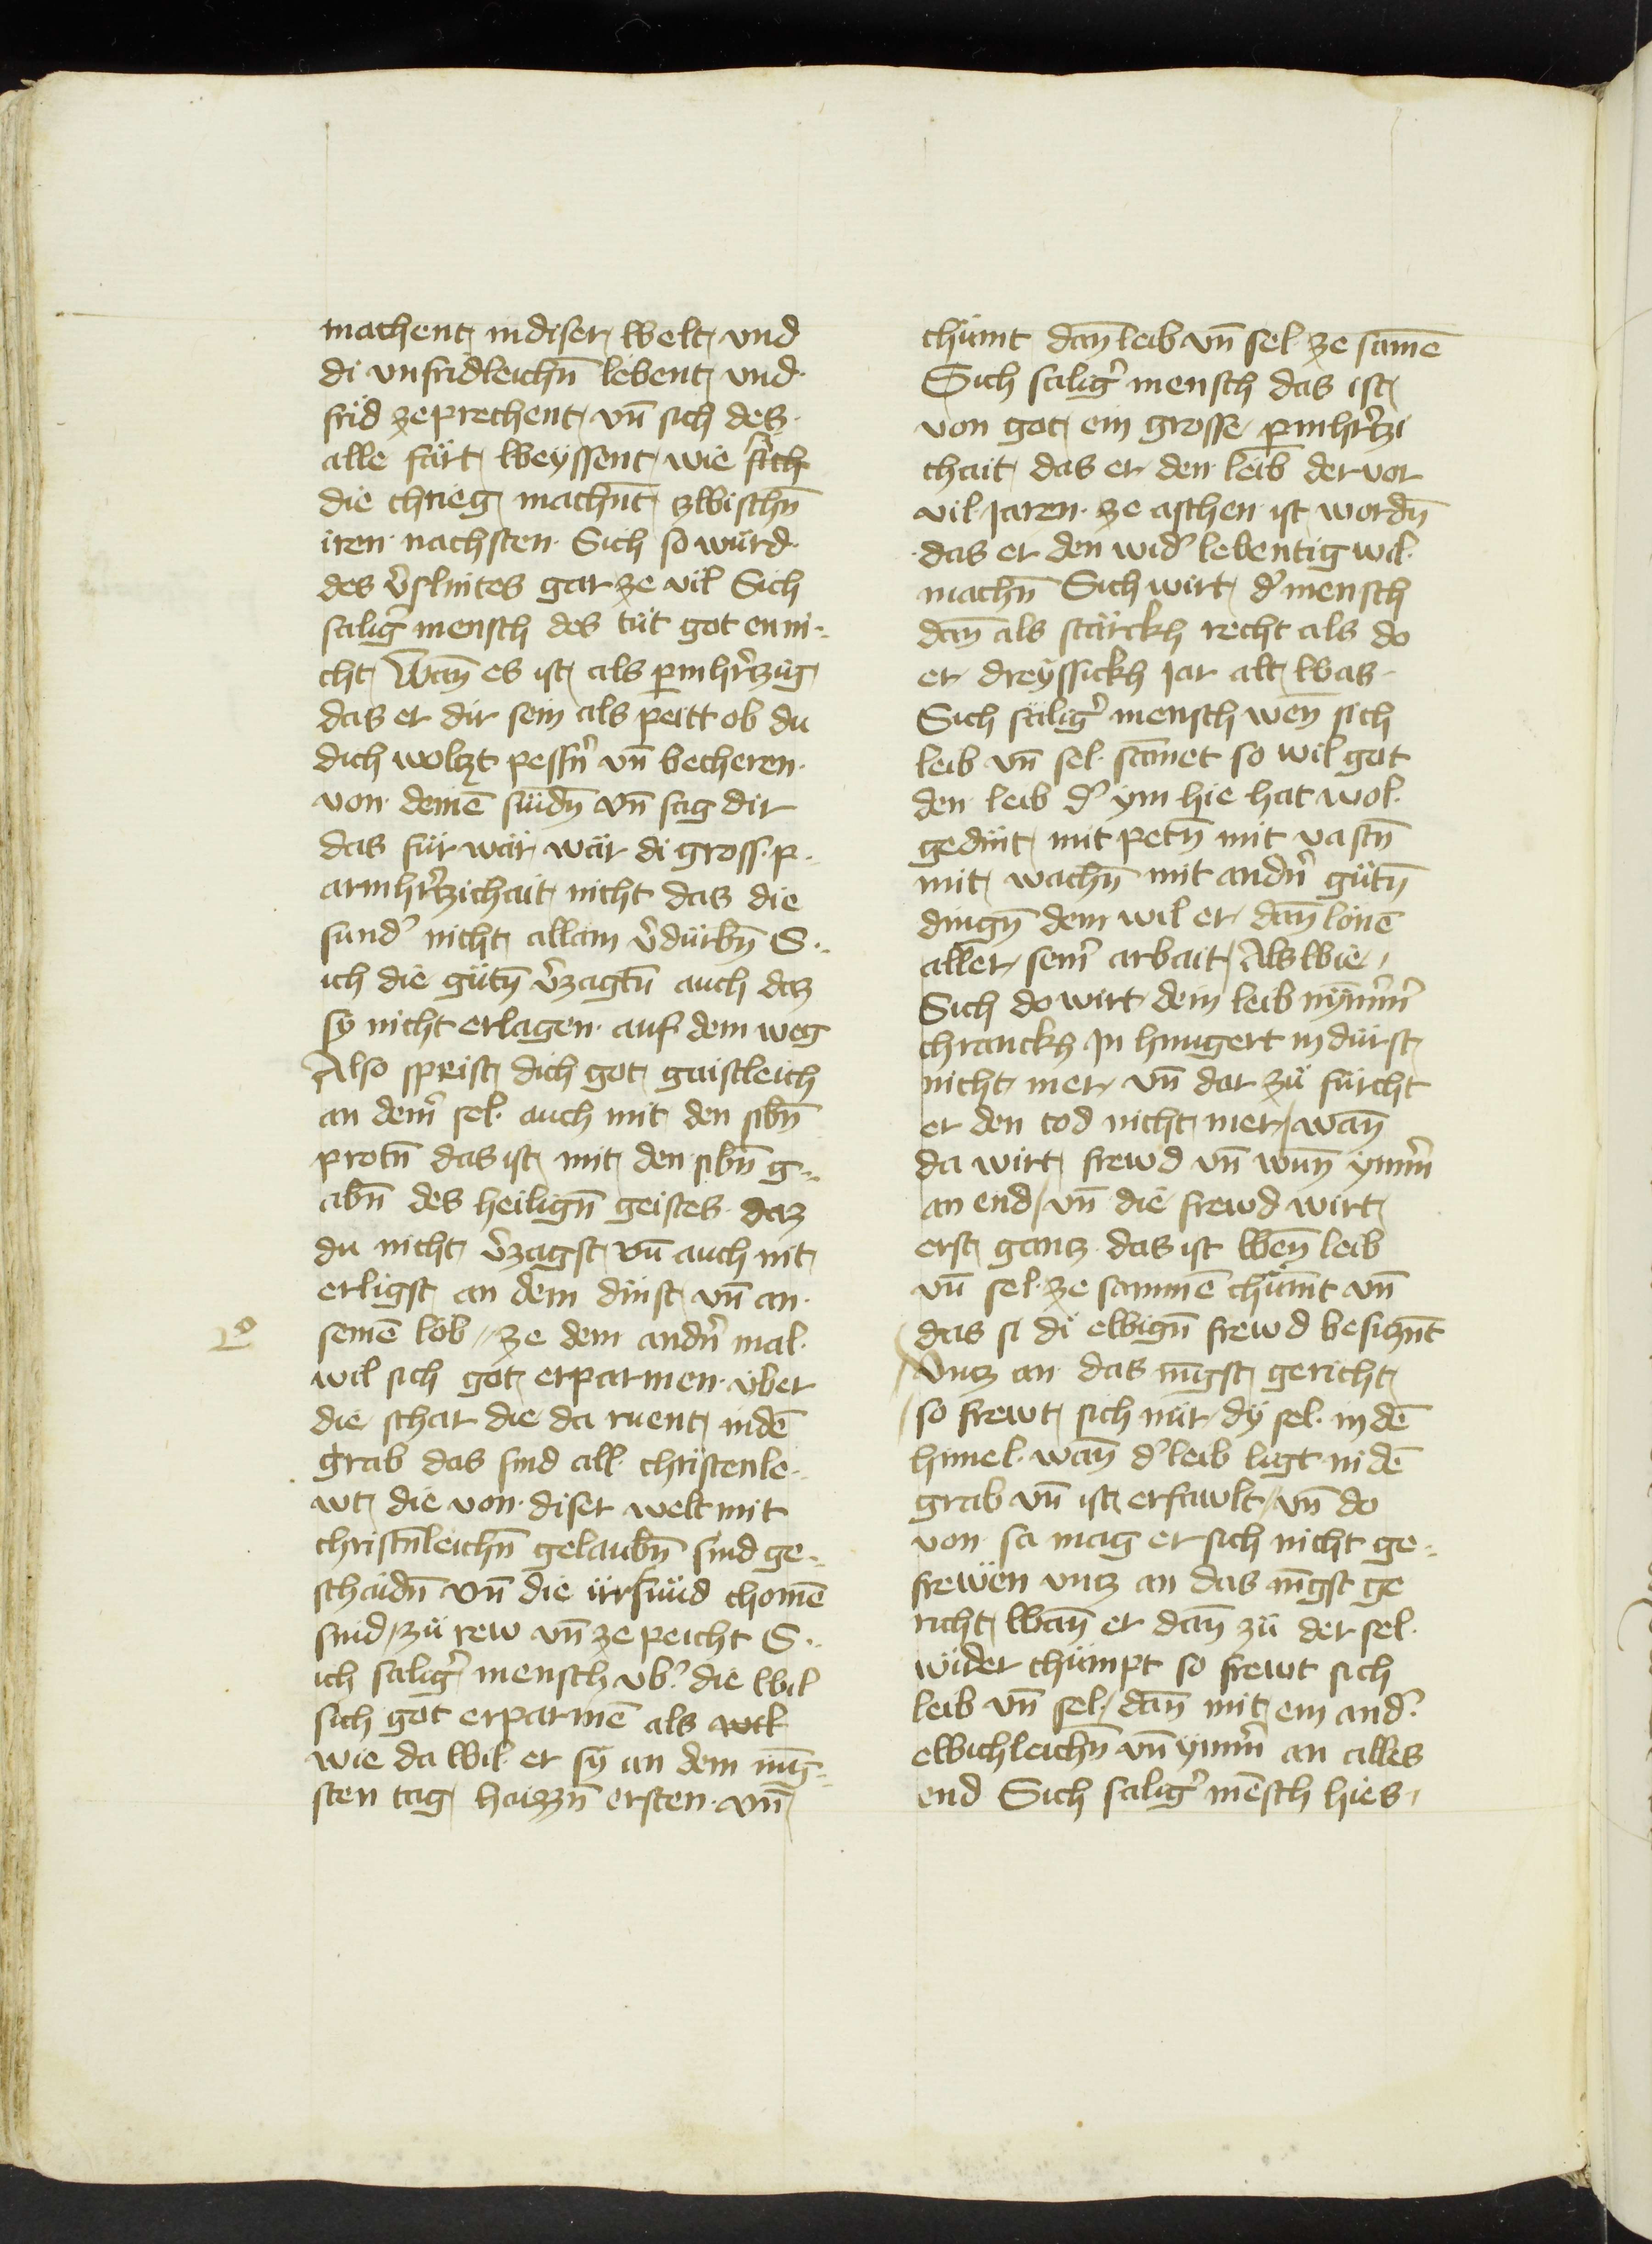 machent in diser welt vnd
di vnfridleichn̄ lebent vnd
frid zeprechent vn̄ sich des
alle färt weyssent wie sich
die chrieg machn̄t zwischn̄
iren nachsten Sich so würd
des v̉slintes gar ze vil Sich
salig̉ mensch des tüt got enni¬
cht Wan̄ es ist als pmhr̉tzig
das er dir sein als peitt ob du
dich woltzt pessn̉ vn̄ becheren
von deinē sündn̄ vn̄ sag dir
das fürwär wär di gross p¬
armhr̉tzichait nicht das die
sund̉ nicht allain v̉dürbn̄ S¬
ich die gütn̄ v̉zagtn̄ auch daz
sy nicht erlagen auf dem weg
Also speist dich got gaistleich
an dein̉ sel auch mit den sibn̄
protn̄ das ist mit den sibn̄ g¬
abn̄ des heilign̄ geistes daz
du nicht v̉zagst vn̄ auch nit
erligst an dem dinst vn̄ an
2º seinē lob ze dem andn̉ mal
wil sich got erparmen über
die schar die da ruent in dē
grab das sind all christenle¬
wt die von diser welt mit
christn̄leichn̄ gelaubn̄ sind ge¬
schaidn̄ vn̄ die irr sünd chomē
sind zü rew vn̄ ze peicht S¬
ich salig̉ mensch vb̉ die wil
sich got erparmē als wil
wie da wil er sy an dem iūg¬
sten tag haizzn̄ ersten vn̄
chümt dan̄ leib vn̄ sel ze samē
Sich salig̉ mensch das ist
von got ein grosse pmhr̉tzi
chait das er den leib der vor
vil jaren ze aschen ist wordn̄
das er den wid̉ lebentig wil
machn̄ Sich wirt d̉ mensch
dan̄ als stärckh recht als do
er dreyssickh jar alt was
Sich sälig̉ mensch wen̄ sich
leib vn̄ sel sāmet so wil got
den leib d̉ ym hie hat wol
gedint mit petn̄ mit vastn̄
mit wachn̄ mit andn̉ gütn̄
dingn̄ dem wil er dan̄ lönē
aller sein̉ arbait Als wie
Sich do wirt dein leib nȳm̉
chranckh jn hungert in dürst
nicht mer vn̄ dar zü fürcht
er den tod nicht mer wan̄
da wirt frewd vn̄ wun̄ ym̄̉
an end vn̄ die frewd wirt
erst gantz das ist wen̄ leib
vn̄ sel ze sammē chümt vn̄
das si di ewign̄ frewd besiczn̄t
vncz an das iūgst gericht
so frewt sich nür dy sel in dē
himel wan̄ d̉ leib ligt in dē
grab vn̄ ist erfawlt vn̄ do
von sa mag er sich nicht ge¬
frewen vncz an das iūgst ge
richt wan̄ er dan̄ zü der sel
wider chümpt so frewt sich
leib vn̄ sel dan̄ mit ein and̉
ewichleichn̄ vn̄ ym̄̉ an alles
end Sich salig̉ mēsch hies